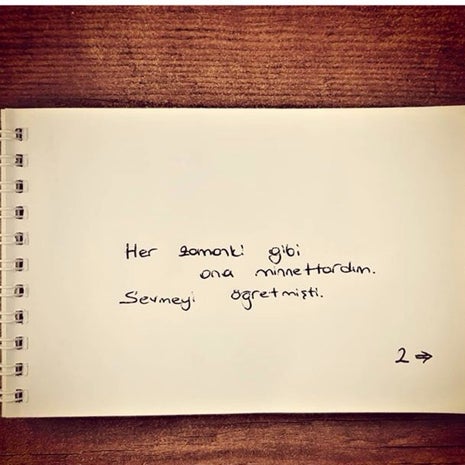 Her zamanki gibi
ona minnettardım.
Sevmeyi öğretmişti.
2 →